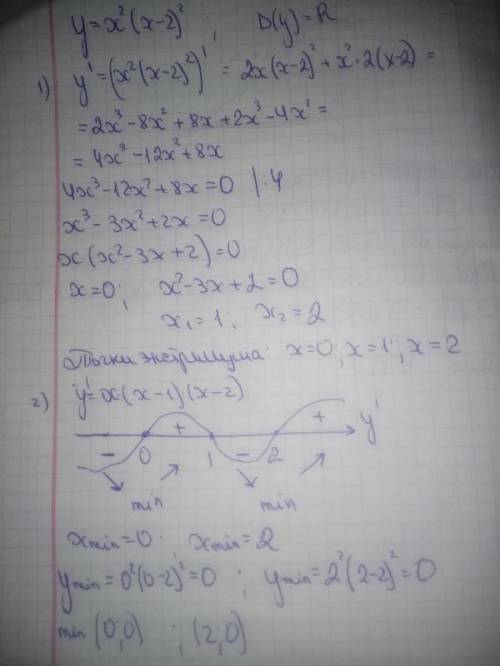 y=x²(x-2)²; D(y)=R
1) y'=(x²(x-2)²)' = 2x(x-2)²+x²·2(x-2)=
=2x³-8x²+8x+2x³-4x²=
=4x³-12x²+8x
4x³-12x²+8x=0 |:4
x³-3x²+2x=0
x(x²-3x+2)=0
x=0; x²-3x+2=0
x₁=1; x₂=2
Точки экстримума: x=0; x=1; x=2
2) y'=x(x-1)(x-2)
- 0 + 1 - 2 + y'
min min
xmin=0; xmin=2
ymin=0²(0-2)²=0; ymin=2²(2-2)²=0
min (0;0) ; (2;0)